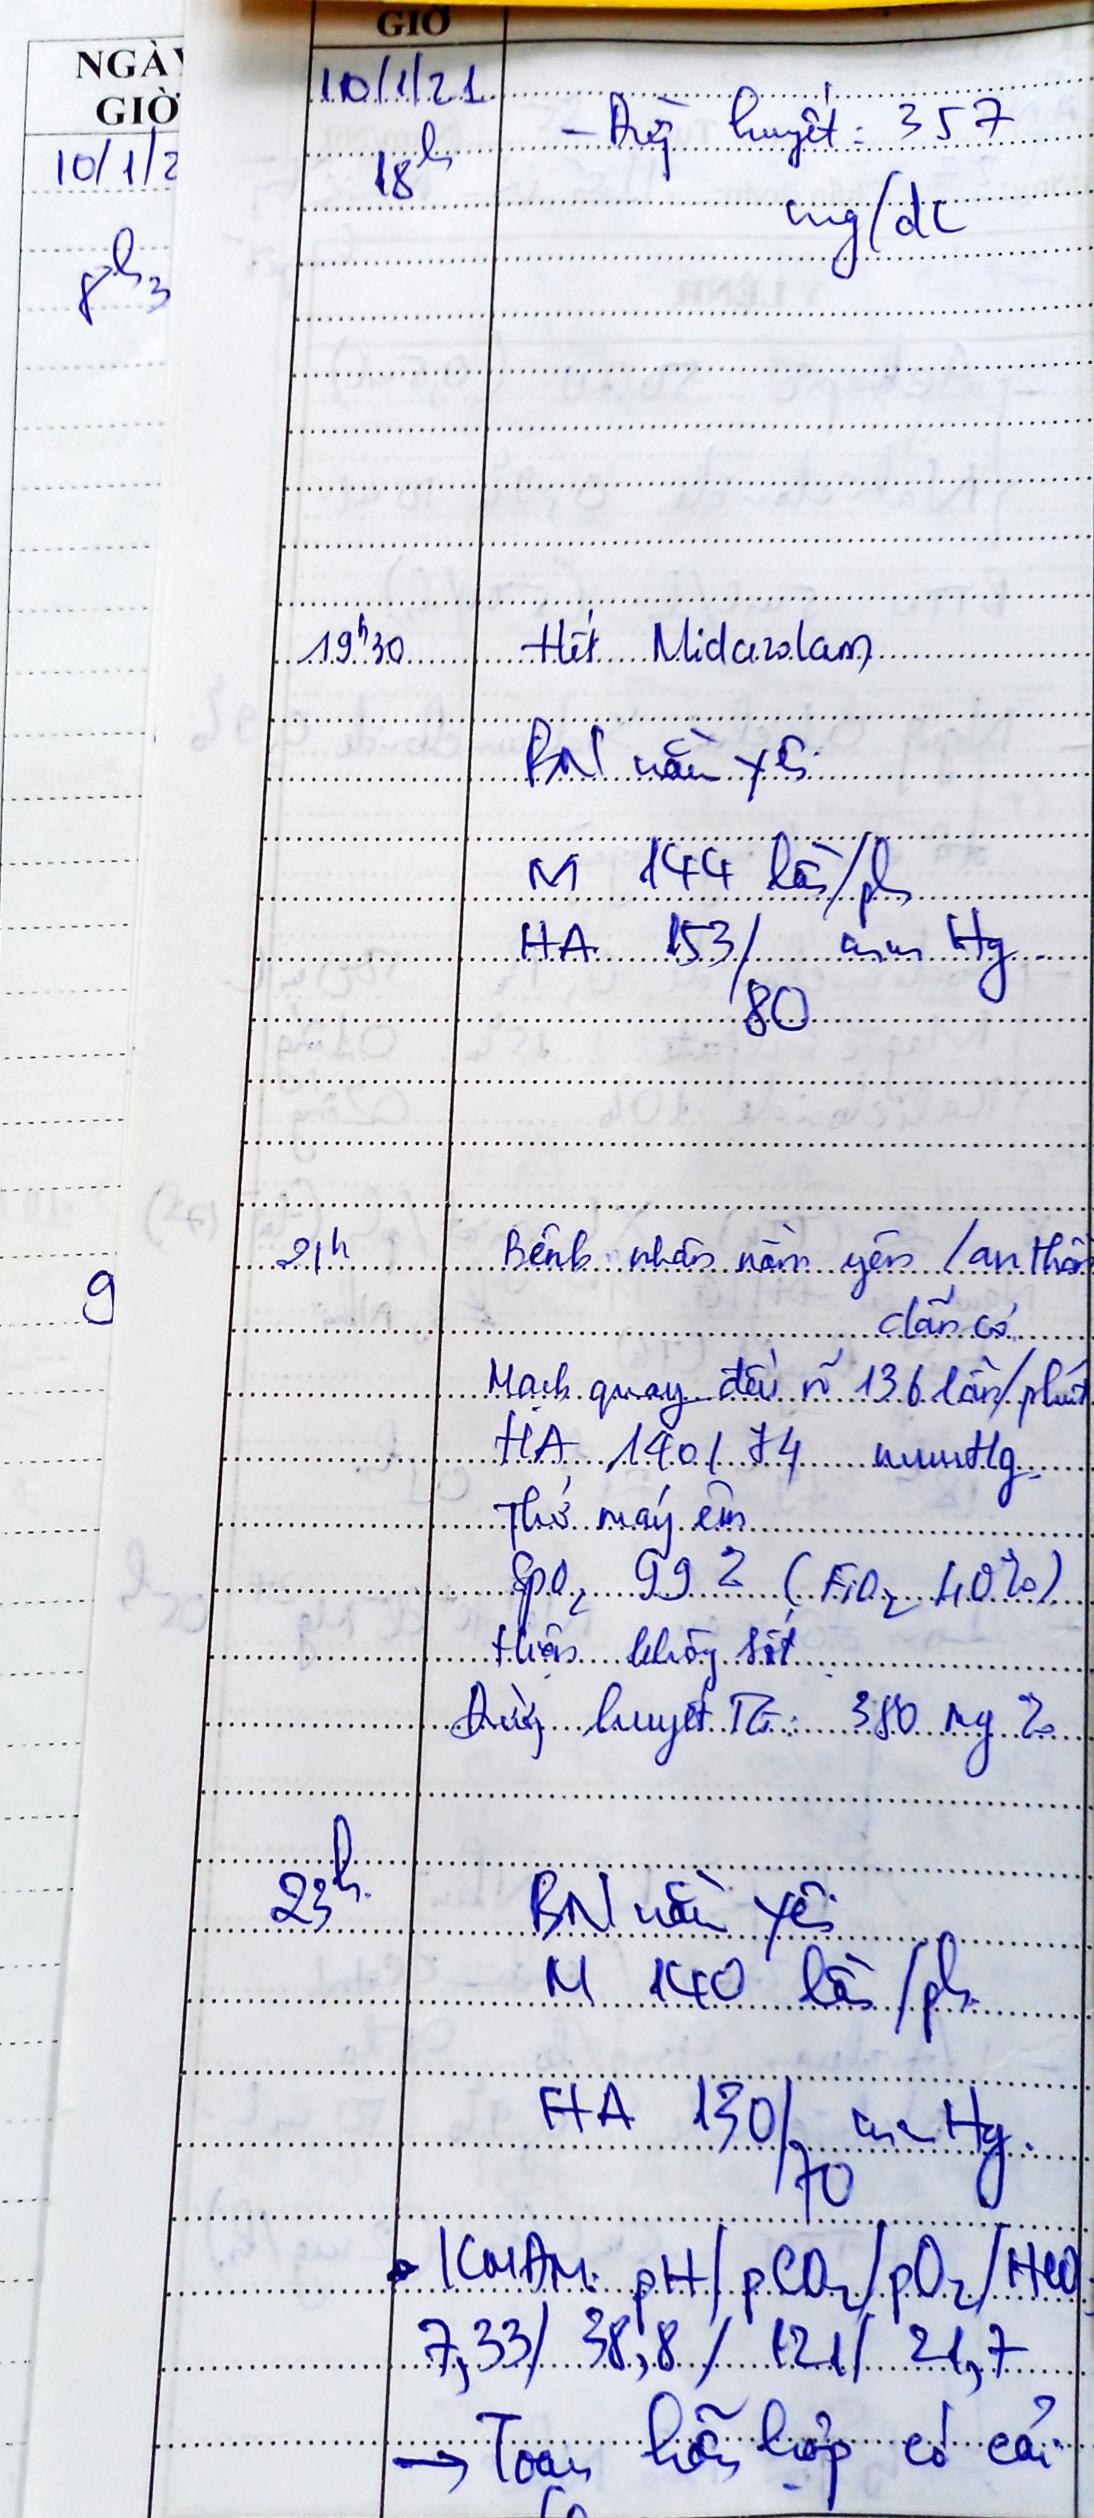 NGÀY
GIỜ
10/1/2
8h3
9
GIỜ
10/1/21
18h
- Đường huyết: 357
mg/dL
19h30
Hết Midazolam
BN nằm yên
M 144 lần/ph
HA 153/80 mmHg
21h
Bệnh nhân nằm yên / an thần
dãn cơ
Mạch quay đều rõ 136 lần/phút
HA 140/74 mmHg
Thở máy êm
SpO2 99% (FiO2 40%)
Hiện không sốt
Đường huyết TT: 380 mg%
23h
BN nằm yên
M 140 lần/ph
HA 130/70 mmHg.
KMĐM: pH/pCO2/pO2/HCO3
7,33/ 38,8 / 121/ 21,7
→ Toan hỗn hợp có cải